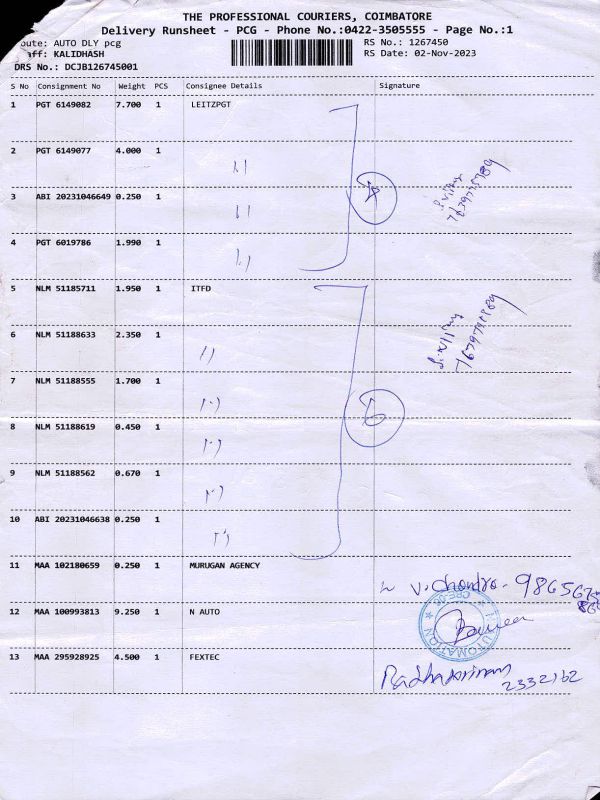 THE PROFESSIONAL COURIERS, COIMBATORE
Delivery Runsheet - PCG - Phone No.:0422-3505555 - Page No.:1
oute: AUTO DLY pcg
RS No.: 1267450
aff: KALIDHASH
RS Date: 02-Nov-2023
DRS No.: DCJB126745001
S No Consignment No Weight PCS Consignee Details Signature
1 PGT 6149082 7.700 1 LEITZPGT
2 PGT 6149077 4.000 1
3 ABI 20231046649 0.250 1
4 PGT 6019786 1.990 1
5 NLM 51185711 1.950 1 ITFD
6 NLM 51188633 2.350 1
7 NLM 51188555 1.700 1
8 NLM 51188619 0.450 1
9 NLM 51188562 0.670 1
10 ABI 20231046638 0.250 1
6
11 MAA 102180659 0.250 1 MURUGAN AGENCY
V. Chandra
12 MAA 100993813 9.250 1 N AUTO
AUTOMATION
13 MAA 295928925 4.500 1 FEXTEC
2332162